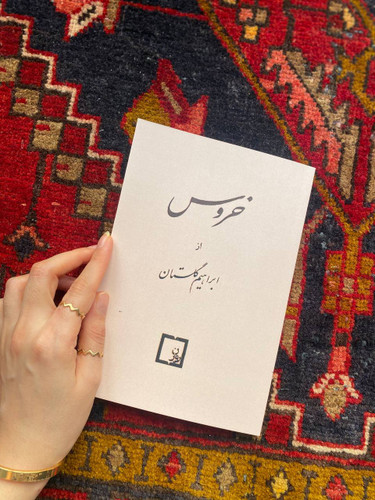 خروس
از
ابراهیم گلستان